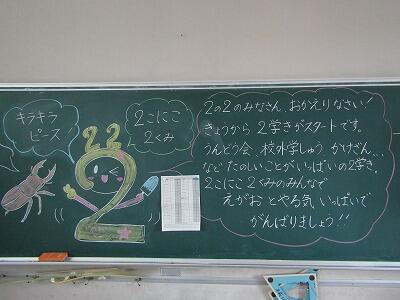 キラキラ
ピース
22
2こにこ
2くみ
2
2の2のみなさん、おかえりなさい!
きょうから 2学きがスタートです。
うんどう会、校外学しゅう、かけざん...
など たのしいことがいっぱいの2学き。
2こにこ2くみのみんなで
えがおとやる気いっぱいで
がんばりましょう!!